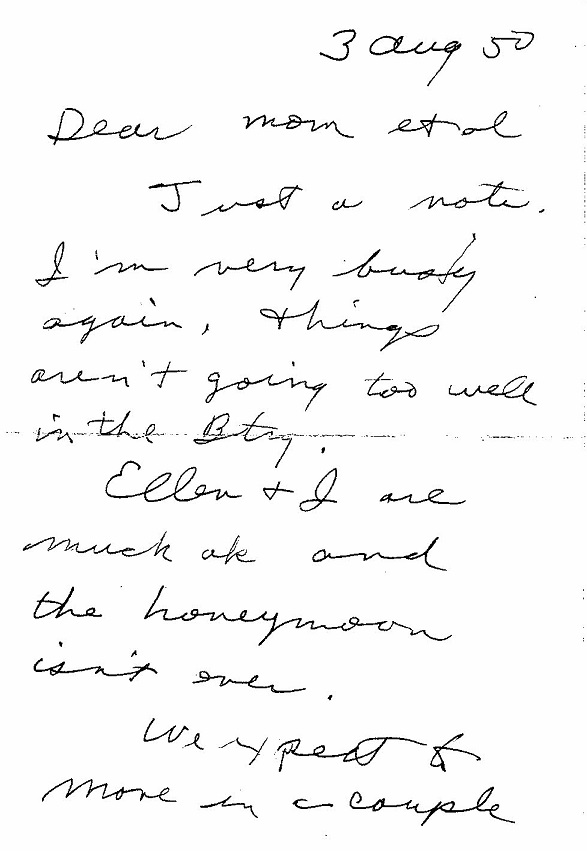 3 Aug 50
Dear mom et al
Just a note.
I'm very busy
again, things
aren't going too well
in the Btry.
Ellen + I are
much ok and
the honeymoon
isn't over.
We expect to
move in a couple